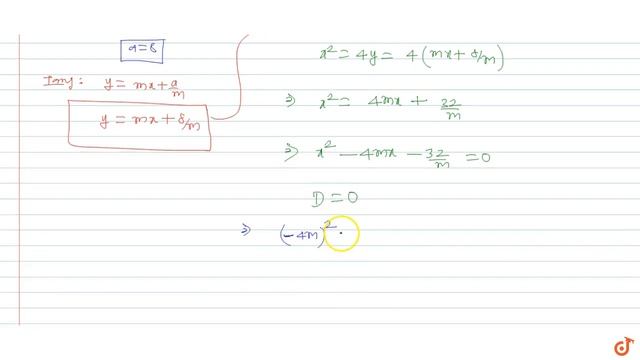 a=8
Tang: y = mx + a/m
y = mx + 8/m
x² = 4y = 4(mx + 8/m)
⇒ x² = 4mx + 32/m
⇒ x² - 4mx - 32/m = 0
D = 0
⇒ (-4m)²